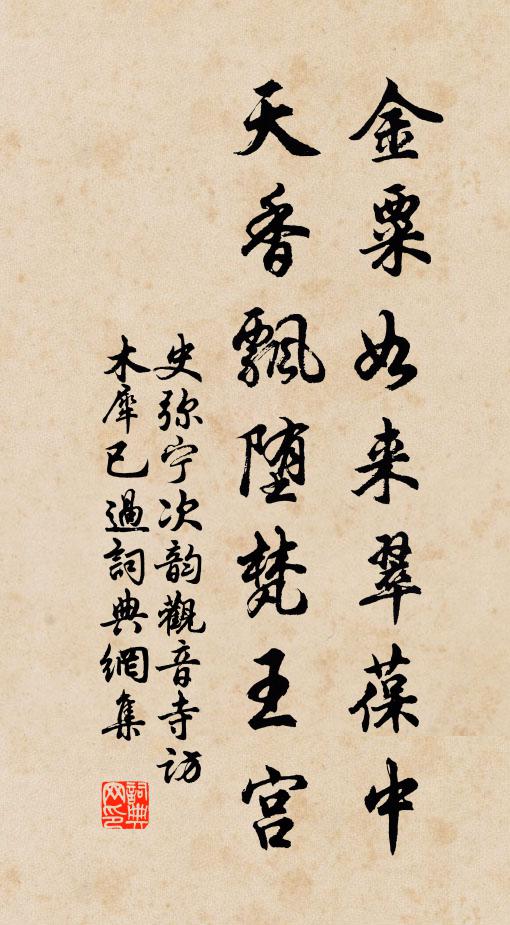 金粟如来翠葆中
天香飄堕梵王宫
史弥宁次韵觀音寺访
木犀已過詞典網集
詞典
网印